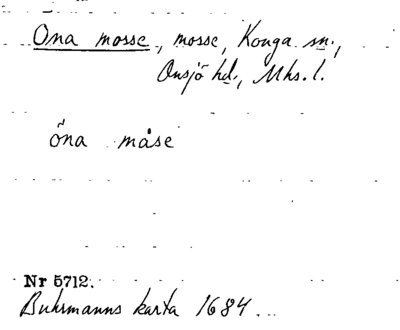 Ona mosse, mosse, Konga sn.,
Onsjö hd., Mhs. l.
öna måse
Nr 5712.
Buhrmanns karta 1684.